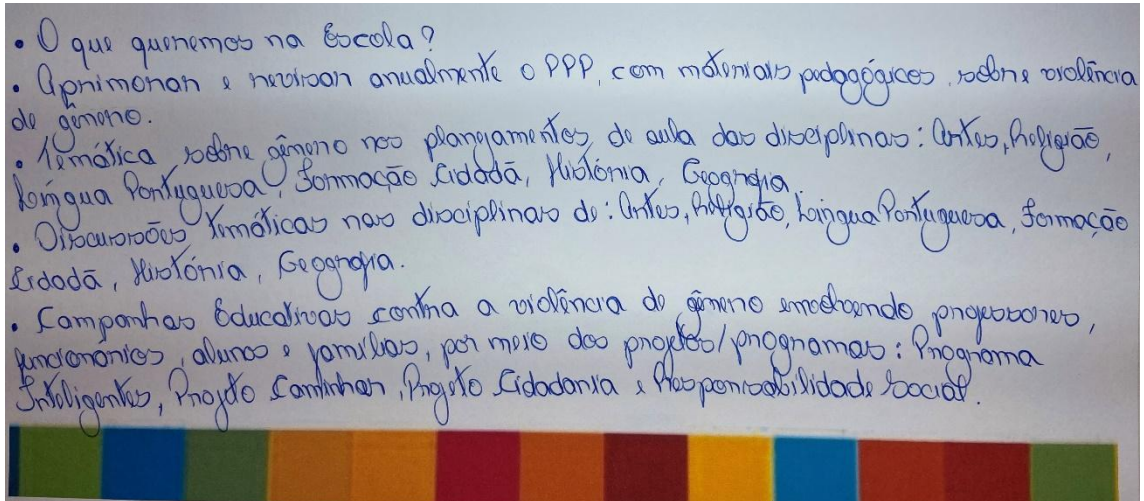 • O que queremos na Escola?
• Aprimorar e revisar anualmente o PPP, com materiais pedagógicos, sobre violência
de gênero.
• Temática sobre gênero nos planejamentos de aula das disciplinas: Artes, Religião,
Língua Portuguesa, Formação Cidadã, História, Geografia.
• Discursões temáticas nas disciplinas de: Artes, Religião, Língua Portuguesa, Formação
Cidadã, História, Geografia.
• Campanhas Educativas contra a violência de gênero envolvendo professores,
funcionários, alunos e famílias, por meio dos projetos/programas: Programa
Inteligentes, Projeto Caminhar, Projeto Cidadania e Responsabilidade Social.